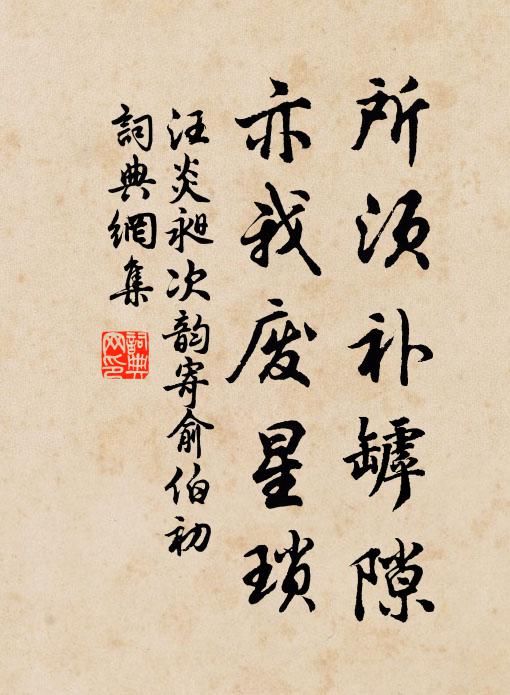 所须补罅隙
亦我废星琐
汪炎昶次韵寄俞伯初
词典网集
词典网印